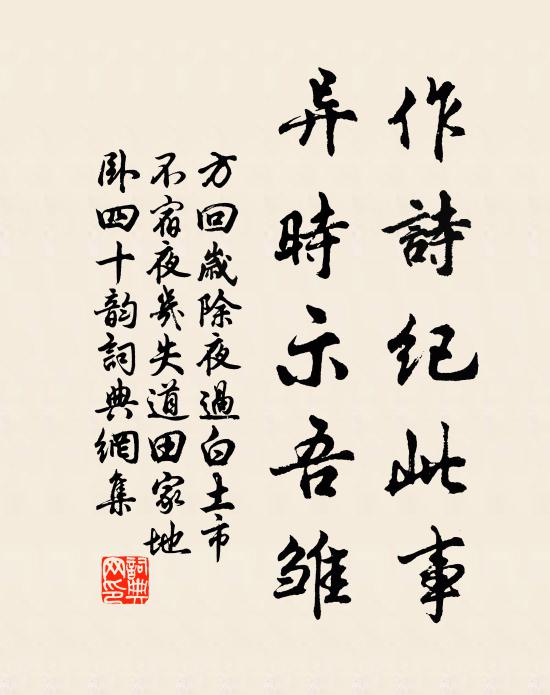 作詩紀此事
异時示吾雏
方回歲除夜過白土市
不宿夜幾失道田家地
卧四十韵詞典網集
詞典網印